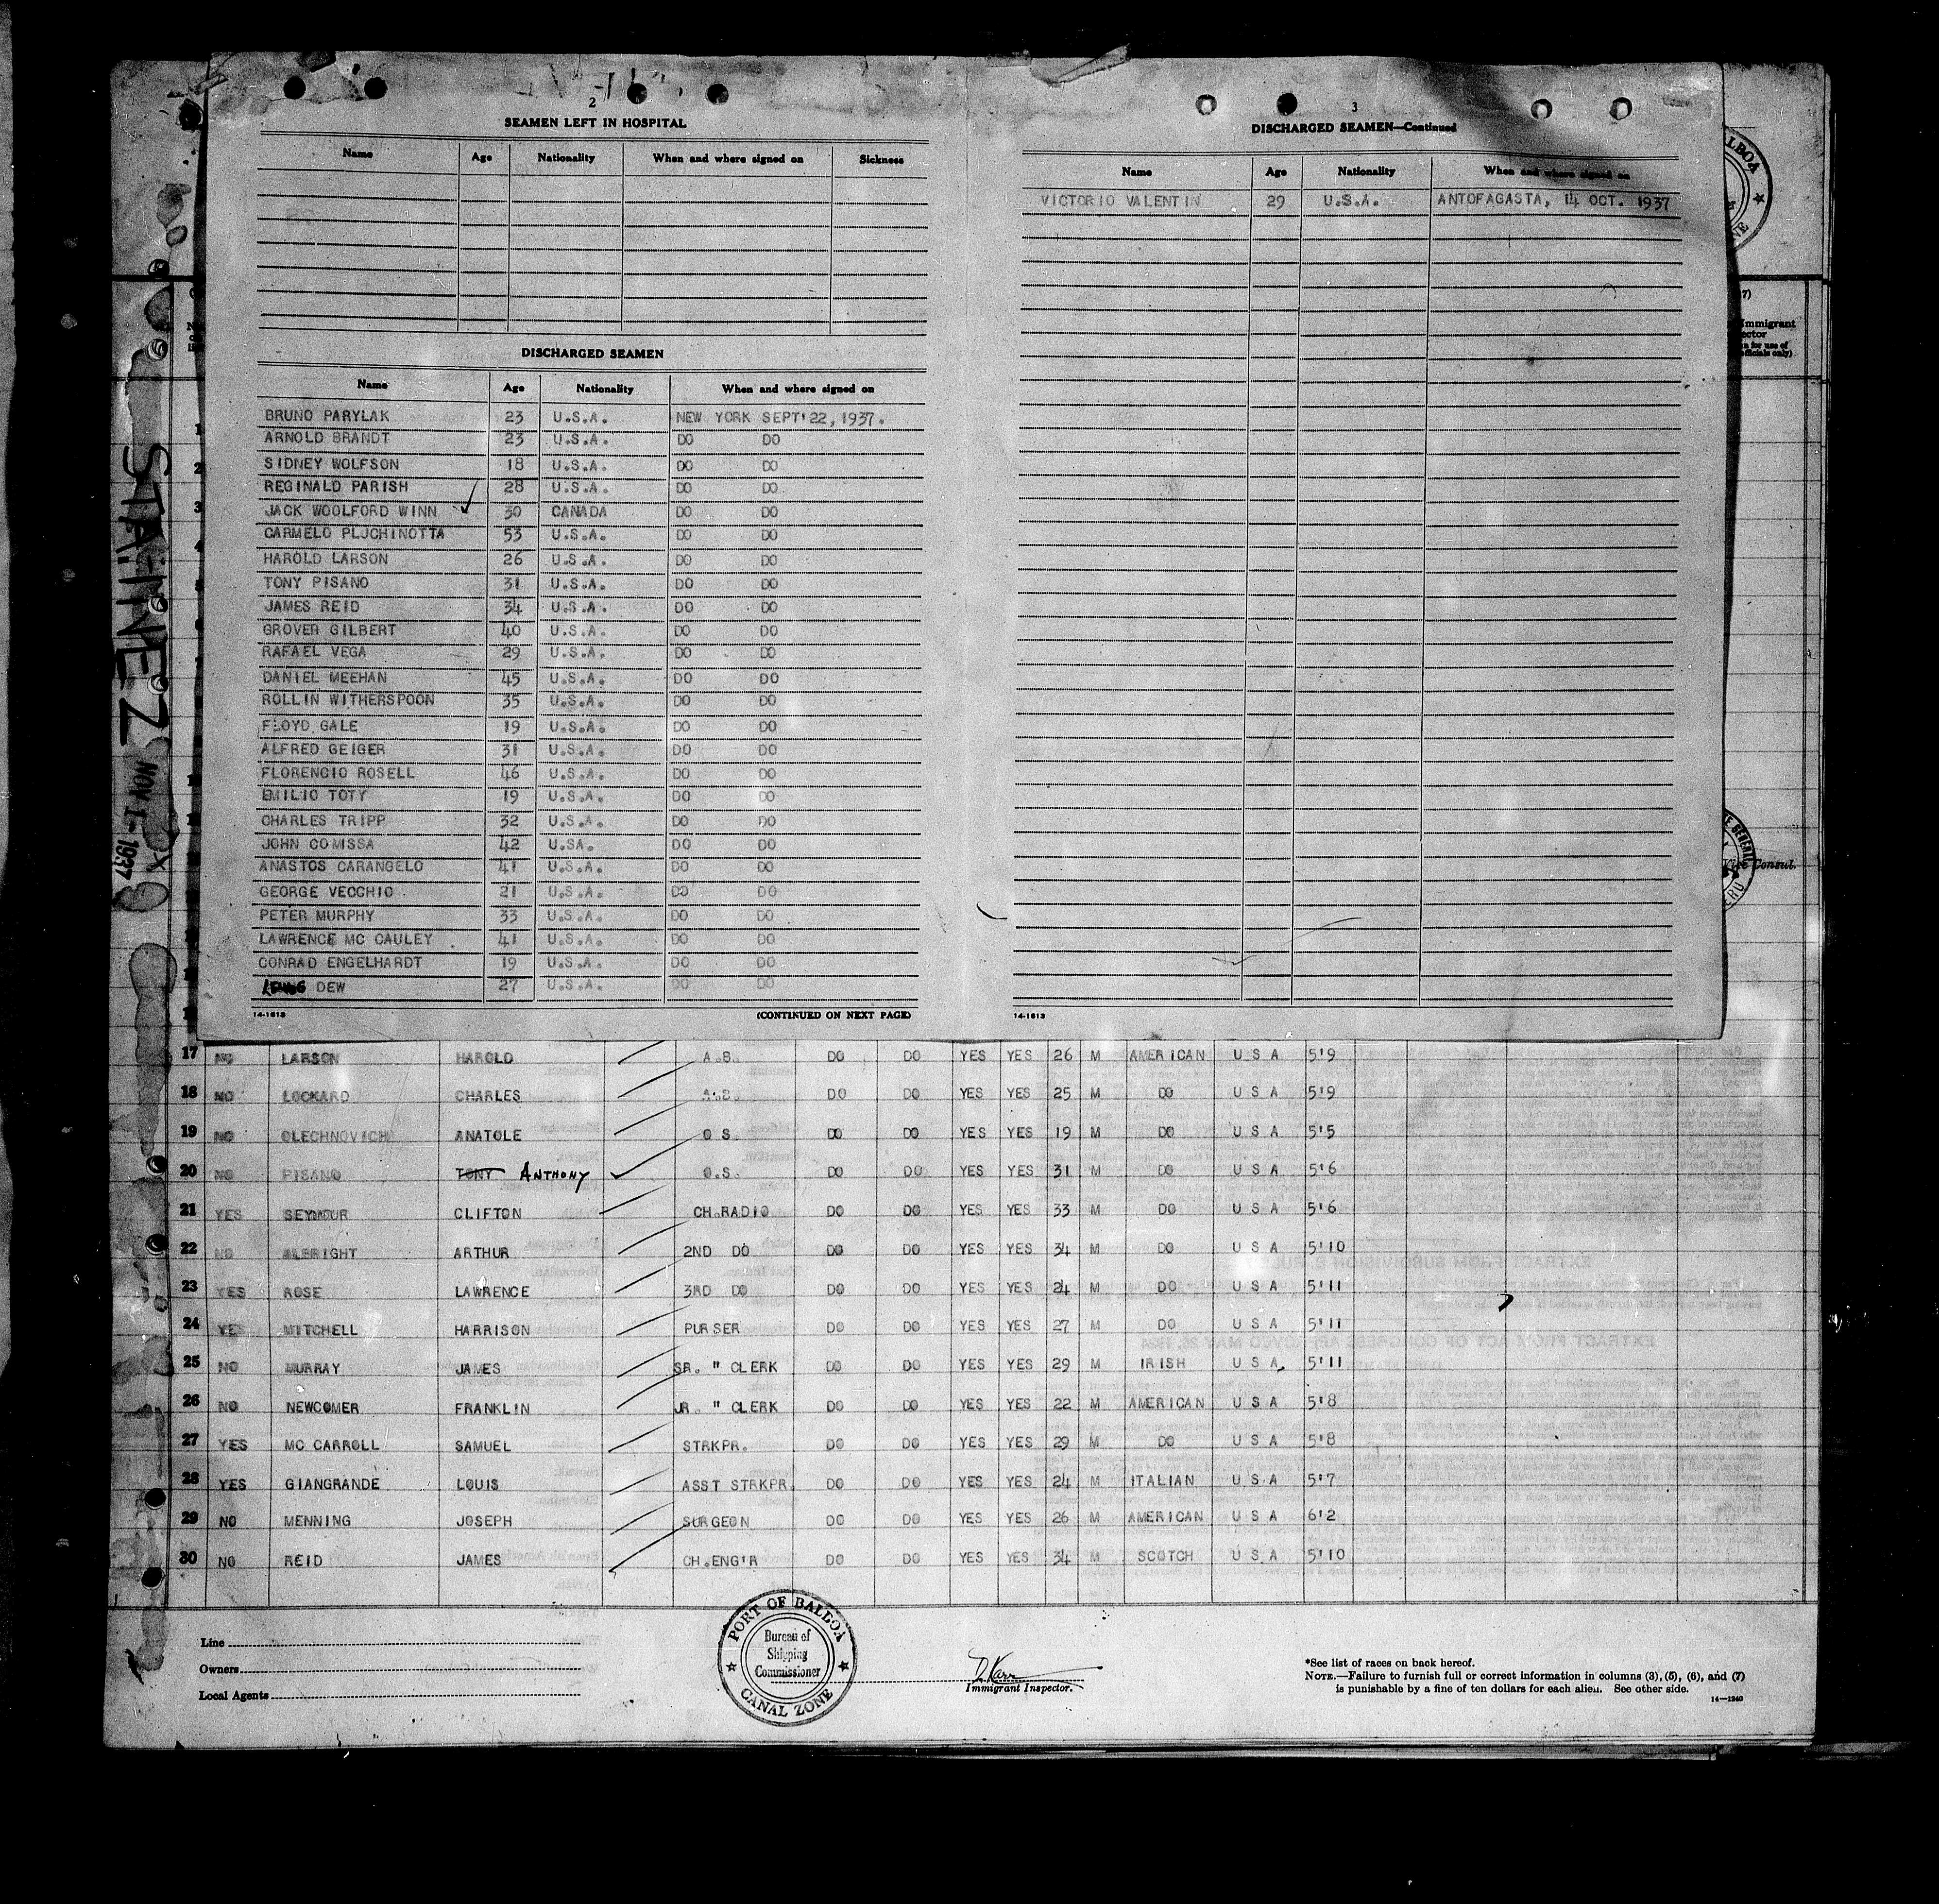 2
SEAMEN LEFT IN HOSPITAL
Name Age Nationality When and where signed on Sickness
DISCHARGED SEAMEN
Name Age Nationality When and where signed on
BRUNO PARYLAK 23 U.S.A. NEW YORK SEPT'22,1937.
ARNOLD BRANDT 23 U.S.A. DO DO
SIDNEY WOLFSON 18 U.S.A. DO DO
REGINALD PARISH 28 U.S.A. DO DO
JACK WOOLFORD WINN 30 CANADA DO DO
CARMELO PLUCHINOTTA 53 U.S.A. DO DO
HAROLD LARSON 26 U.S.A. DO DO
TONY PISANO 31 U.S.A. DO DO
JAMES REID 34 U.S.A. DO DO
GROVER GILBERT 40 U.S.A. DO DO
RAFAEL VEGA 29 U.S.A. DO DO
DANIEL MEEHAN 45 U.S.A. DO DO
ROLLIN WITHERSPOON 35 U.S.A. DO DO
FLOYD GALE 19 U.S.A. DO DO
ALFRED GEIGER 31 U.S.A. DO DO
FLORENCIO ROSELL 46 U.S.A. DO DO
EMILIO TOTY 19 U.S.A. DO DO
CHARLES TRIPP 32 U.S.A. DO DO
JOHN COMISSA 42 U.SA. DO DO
ANASTOS CARANGELO 41 U.S.A. DO DO
GEORGE VECCHIO 21 U.S.A. DO DO
PETER MURPHY 33 U.S.A. DO DO
LAWRENCE MC CAULEY 41 U.S.A. DO DO
CONRAD ENGELHARDT 19 U.S.A. DO DO
DEW 27 U.S.A. DO DO
14-1613 (CONTINUED ON NEXT PAGE)
3
DISCHARGED SEAMEN—Continued
Name Age Nationality When and where signed on
VICTORIO VALENTIN 29 U.S.A. ANTOFAGASTA, 14 OCT. 1937
14-1613
NOV 1-1937
Immigrant
Vice Consul.
17 NO LARSON HAROLD A.B. DO DO YES YES 26 M AMERICAN U S A 5'9
18 NO LOCKARD CHARLES A.B. DO DO YES YES 25 M DO U S A 5'9
19 NO OLECHNOVICH ANATOLE O S. DO DO YES YES 19 M DO U S A 5'5
20 NO PISANO TONY ANTHONY O.S. DO DO YES YES 31 M DO U S A 5'6
21 YES SEYMOUR CLIFTON CH.RADIO DO DO YES YES 33 M DO U S A 5'6
22 NO ALBRIGHT ARTHUR 2ND DO DO DO YES YES 34 M DO U S A 5'10
23 YES ROSE LAWRENCE 3RD DO DO DO YES YES 24 M DO U S A 5'11
24 YES MITCHELL HARRISON PURSER DO DO YES YES 27 M DO U S A 5'11
25 NO MURRAY JAMES SR. " CLERK DO DO YES YES 29 M IRISH U S A. 5'11
26 NO NEWCOMER FRANKLIN JR. " CLERK DO DO YES YES 22 M AMERICAN U S A 5'8
27 YES MC CARROLL SAMUEL STRKPR. DO DO YES YES 29 M DO U S A 5'8
28 YES GIANGRANDE LOUIS ASST STRKPR. DO DO YES YES 24 M ITALIAN U S A 5'7
29 NO MENNING JOSEPH SURGEON DO DO YES YES 26 M AMERICAN U S A 6'2
30 NO REID JAMES CH.ENG'R DO DO YES YES 34 M SCOTCH U S A 5'10
Line
Owners
Local Agents
PORT OF BALBOA
Bureau of
Shipping
Commissioner
CANAL ZONE
Immigrant Inspector.
*See list of races on back hereof.
NOTE.—Failure to furnish full or correct information in columns (3), (5), (6), and (7)
is punishable by a fine of ten dollars for each alien. See other side.
14—1240